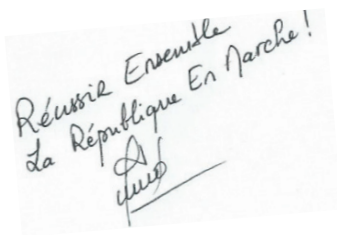 Réussir Ensemble
La République En Marche !